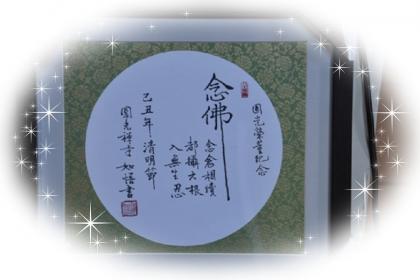 圓光榮董紀念
念佛
念念相續
都攝六根
入無生忍
己丑年清明節
圓光禪寺如悟書